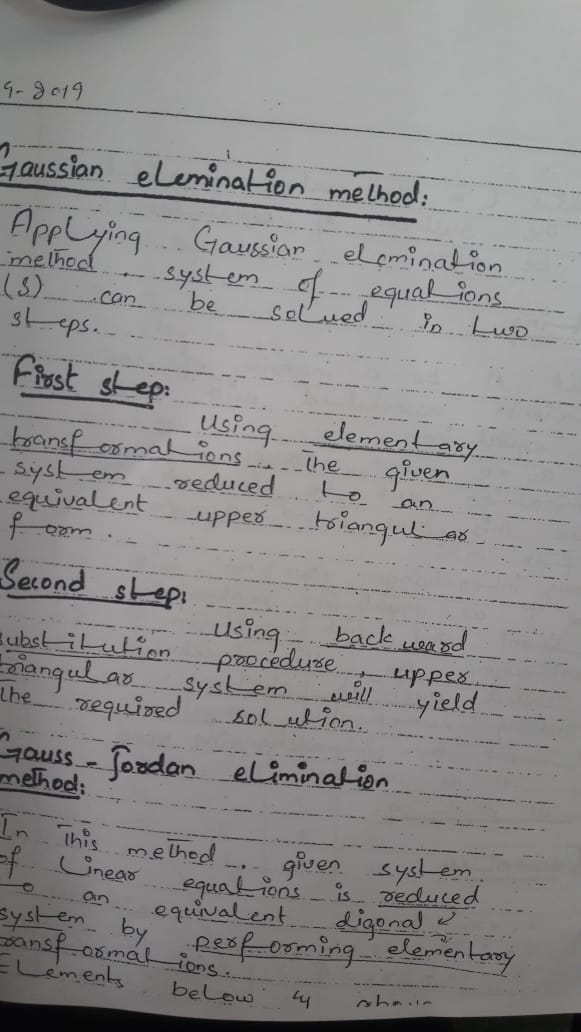 9-2019
Gaussian elemination method:
Applying Gaussian elemination
method, system of equations
(S) can be solved in two
steps.
First step:
Using elementary
transformations, The given
system reduced to an
equivalent upper triangular
form.
Second step:
Using backward
substitution procedure, upper
triangular system will yield
the required solution.
Gauss-Jordan elimination
method:
In This method, given system
of Linear equations is reduced
to an equivalent digonal
system by performing elementary
transformations.
Elements below